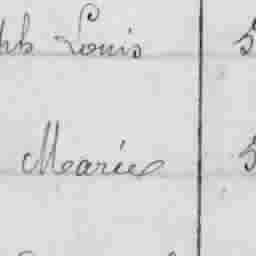 phb Louis 5
Marie 5